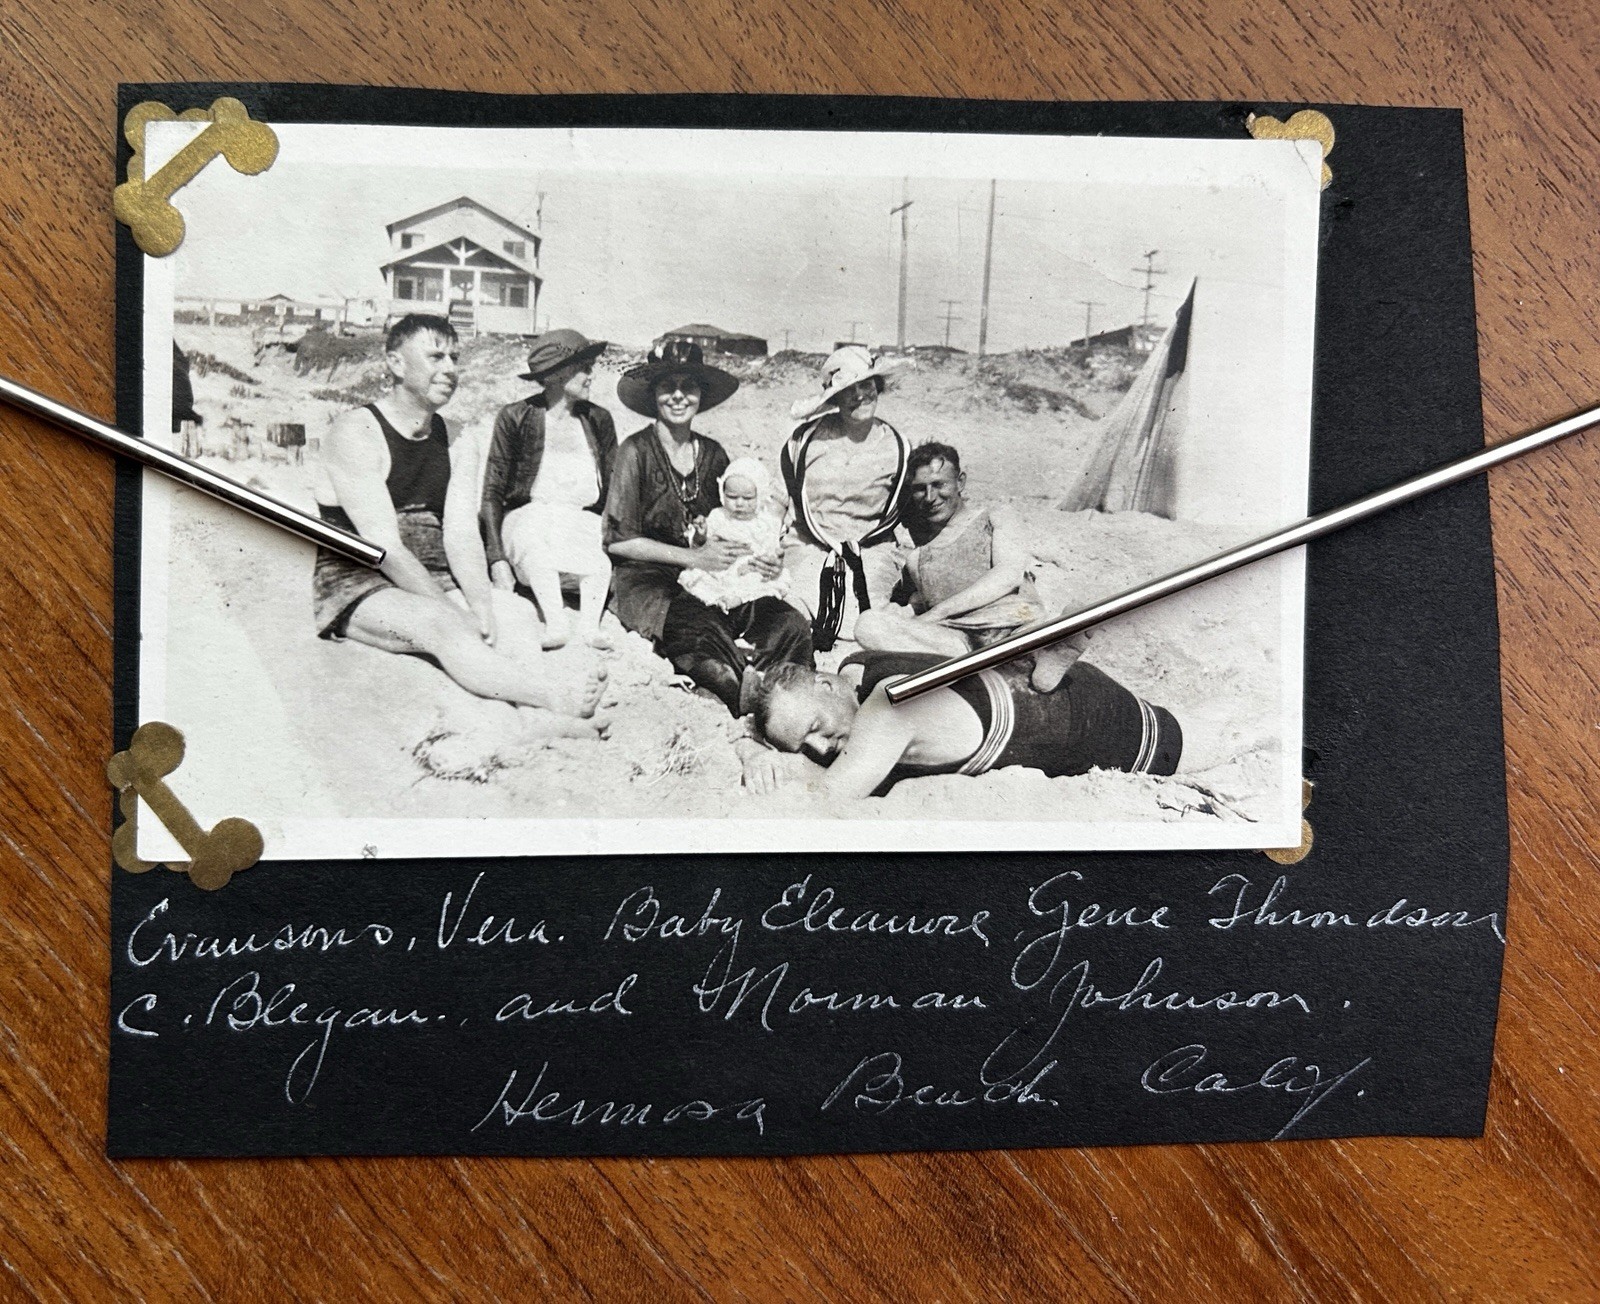 Evansons, Vera. Baby Eleanore, Gene Throndson
C. Blegan., and Norman Johnson.
Hermosa Beach. Calif.